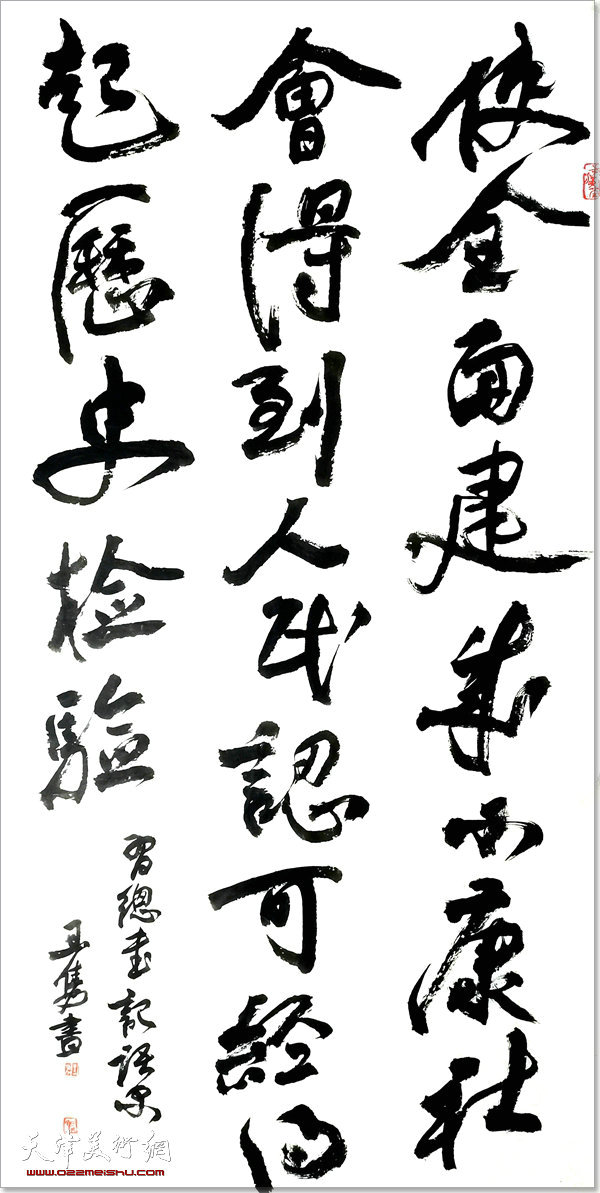 使全面建成小康社
會得到人民認可經得
起歷史检驗
習總書記語錄
書
天津美術網
www.022meishu.com